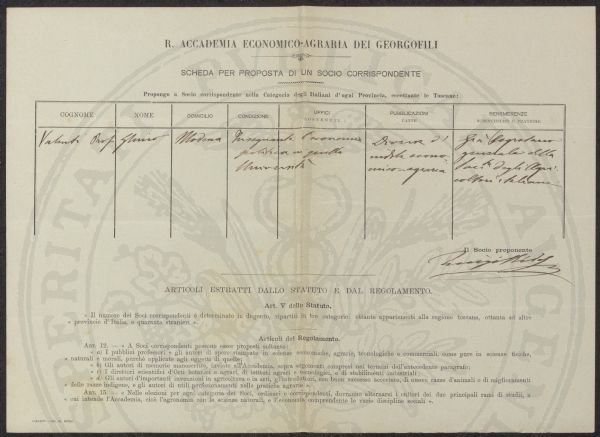 R. ACCADEMIA ECONOMICO-AGRARIA DEI GEORGOFILI
SCHEDA PER PROPOSTA DI UN SOCIO CORRISPONDENTE
Propongo a Socio corrispondente nella Categoria degli Italiani d'ogni Provincia, eccettuate le Toscane:
COGNOME NOME DOMICILIO CONDIZIONE UFFICI PUBBLICAZIONI BENEMERENZE
SOSTENUTI FATTE SCIENTIFICHE O PRATICHE
Valenti Prof. Ghino Modena Insegnante Economia Diverse d' Già Segretario
politica a quella indole econo- generale della
Università mico-agraria Soc. degli Agri-
coltori italiani
Il Socio proponente
ARTICOLI ESTRATTI DALLO STATUTO E DAL REGOLAMENTO.
Art. V dello Statuto.
« Il numero dei Soci corrispondenti è determinato in dugento, ripartiti in tre categorie: ottanta appartenenti alla regione toscana, ottanta ad altre
« provincie d'Italia, e quaranta stranieri ».
Articoli del Regolamento.
ART. 12. — « A Soci corrispondenti possono esser proposti soltanto:
« a) I pubblici professori e gli autori di opere stampate in scienze economiche, agrarie, tecnologiche e commerciali, come pure in scienze fisiche,
« naturali e morali, perchè applicate agli oggetti di quelle;
« b) Gli autori di memorie manoscritte, inviate all'Accademia, sopra argomenti compresi nei termini dell'antecedente paragrafo;
« c) I direttori scientifici d'Orti botanici e agrari, di istituti agrari e tecnologici, e di stabilimenti industriali;
« d) Gli autori d'importanti invenzioni in agricoltura o in arti, gl'introduttori, con buon successo accertato, di nuove razze d'animali e di miglioramenti
« delle razze indigene, e gli autori di utili perfezionamenti nelle pratiche agrarie ».
ART. 15. — « Nelle elezioni per ogni categoria dei Soci, ordinari e corrispondenti, dovranno alternarsi i cultori dei due principali rami di studii, a
« cui intende l'Accademia, cioè l'agronomia con le scienze naturali, e l'economia comprendente le varie discipline sociali ».